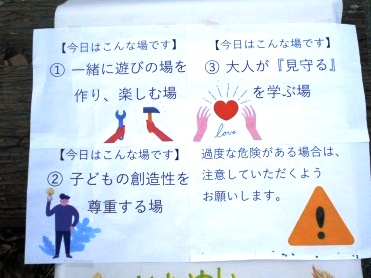 【今日はこんな場です】
① 一緒に遊びの場を
作り、楽しむ場
【今日はこんな場です】
② 子どもの創造性を
尊重する場
【今日はこんな場です】
③ 大人が『見守る』
を学ぶ場
love
過度な危険がある場合は、
注意していただくよう
お願いします。